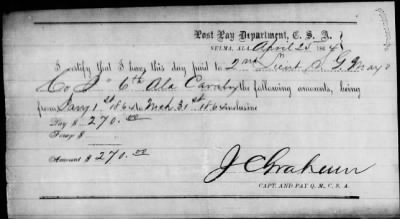 Post Pay Department, C. S. A.
Selma, Ala. April 25 1864
I certify that I have this day paid to 2nd Lieut S. G. Mayo
Co "I" 6th Ala Cavalry the following amounts, being
from Jany 1st 1864 to Mch 31st 1864 inclusive
Pay $ 270.00
Forage $
Amount $ 270.00
J Graham
CAPT. AND PAY Q. M., C. S. A.